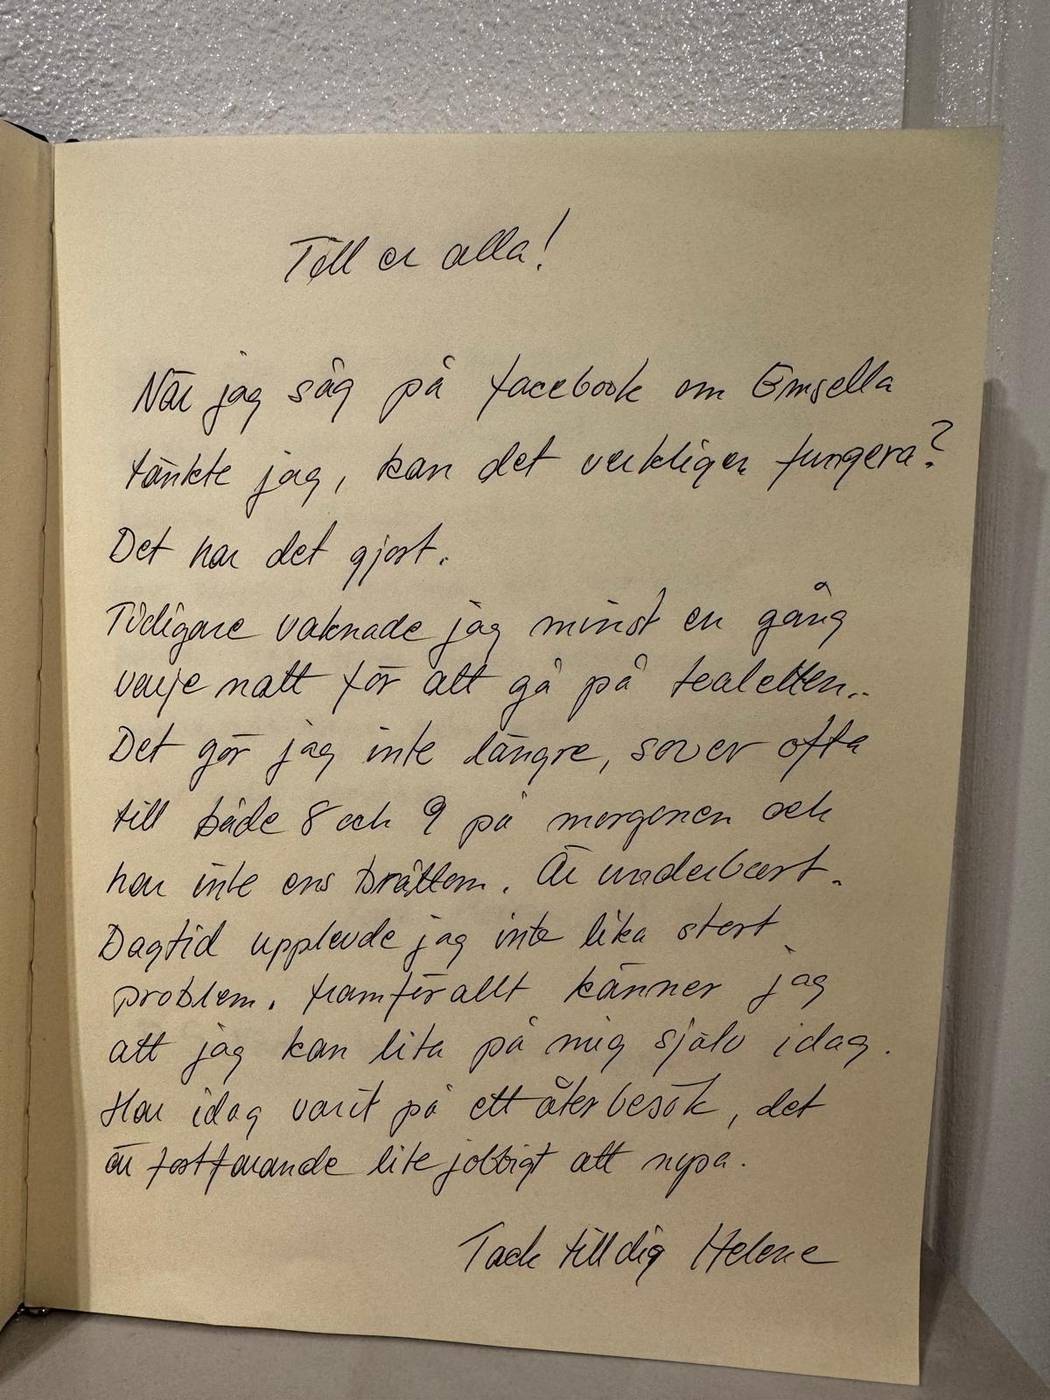 Till er alla!
När jag såg på facebook om Emsella
tänkte jag, kan det verkligen fungera?
Det har det gjort.
Tidigare vaknade jag minst en gång
varje natt för att gå på toaletten..
Det gör jag inte längre, sover ofta
till både 8 och 9 på morgonen och
har inte ens bråttom. Är underbart.
Dagtid upplevde jag inte lika stort
problem. framförallt känner jag
att jag kan lita på mig själv idag.
Har idag varit på ett återbesök, det
är fortfarande lite jobbigt att nypa.
Tack till dig Helene